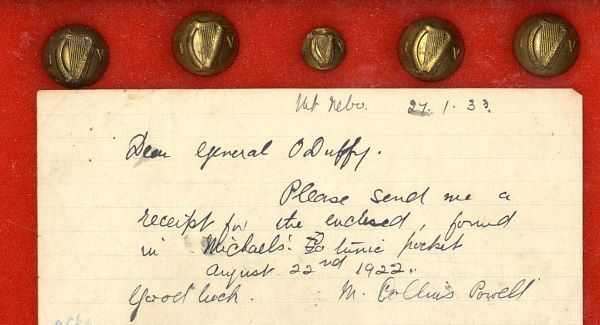 I V
I V
I V
I V
I V
Mt Nebo. 27. 1. 33.
Dear General O Duffy.
Please send me a
receipt for the enclosed, found
in Michaels' tunic pocket
august 22nd 1922.
Good luck. M. Collins Powell